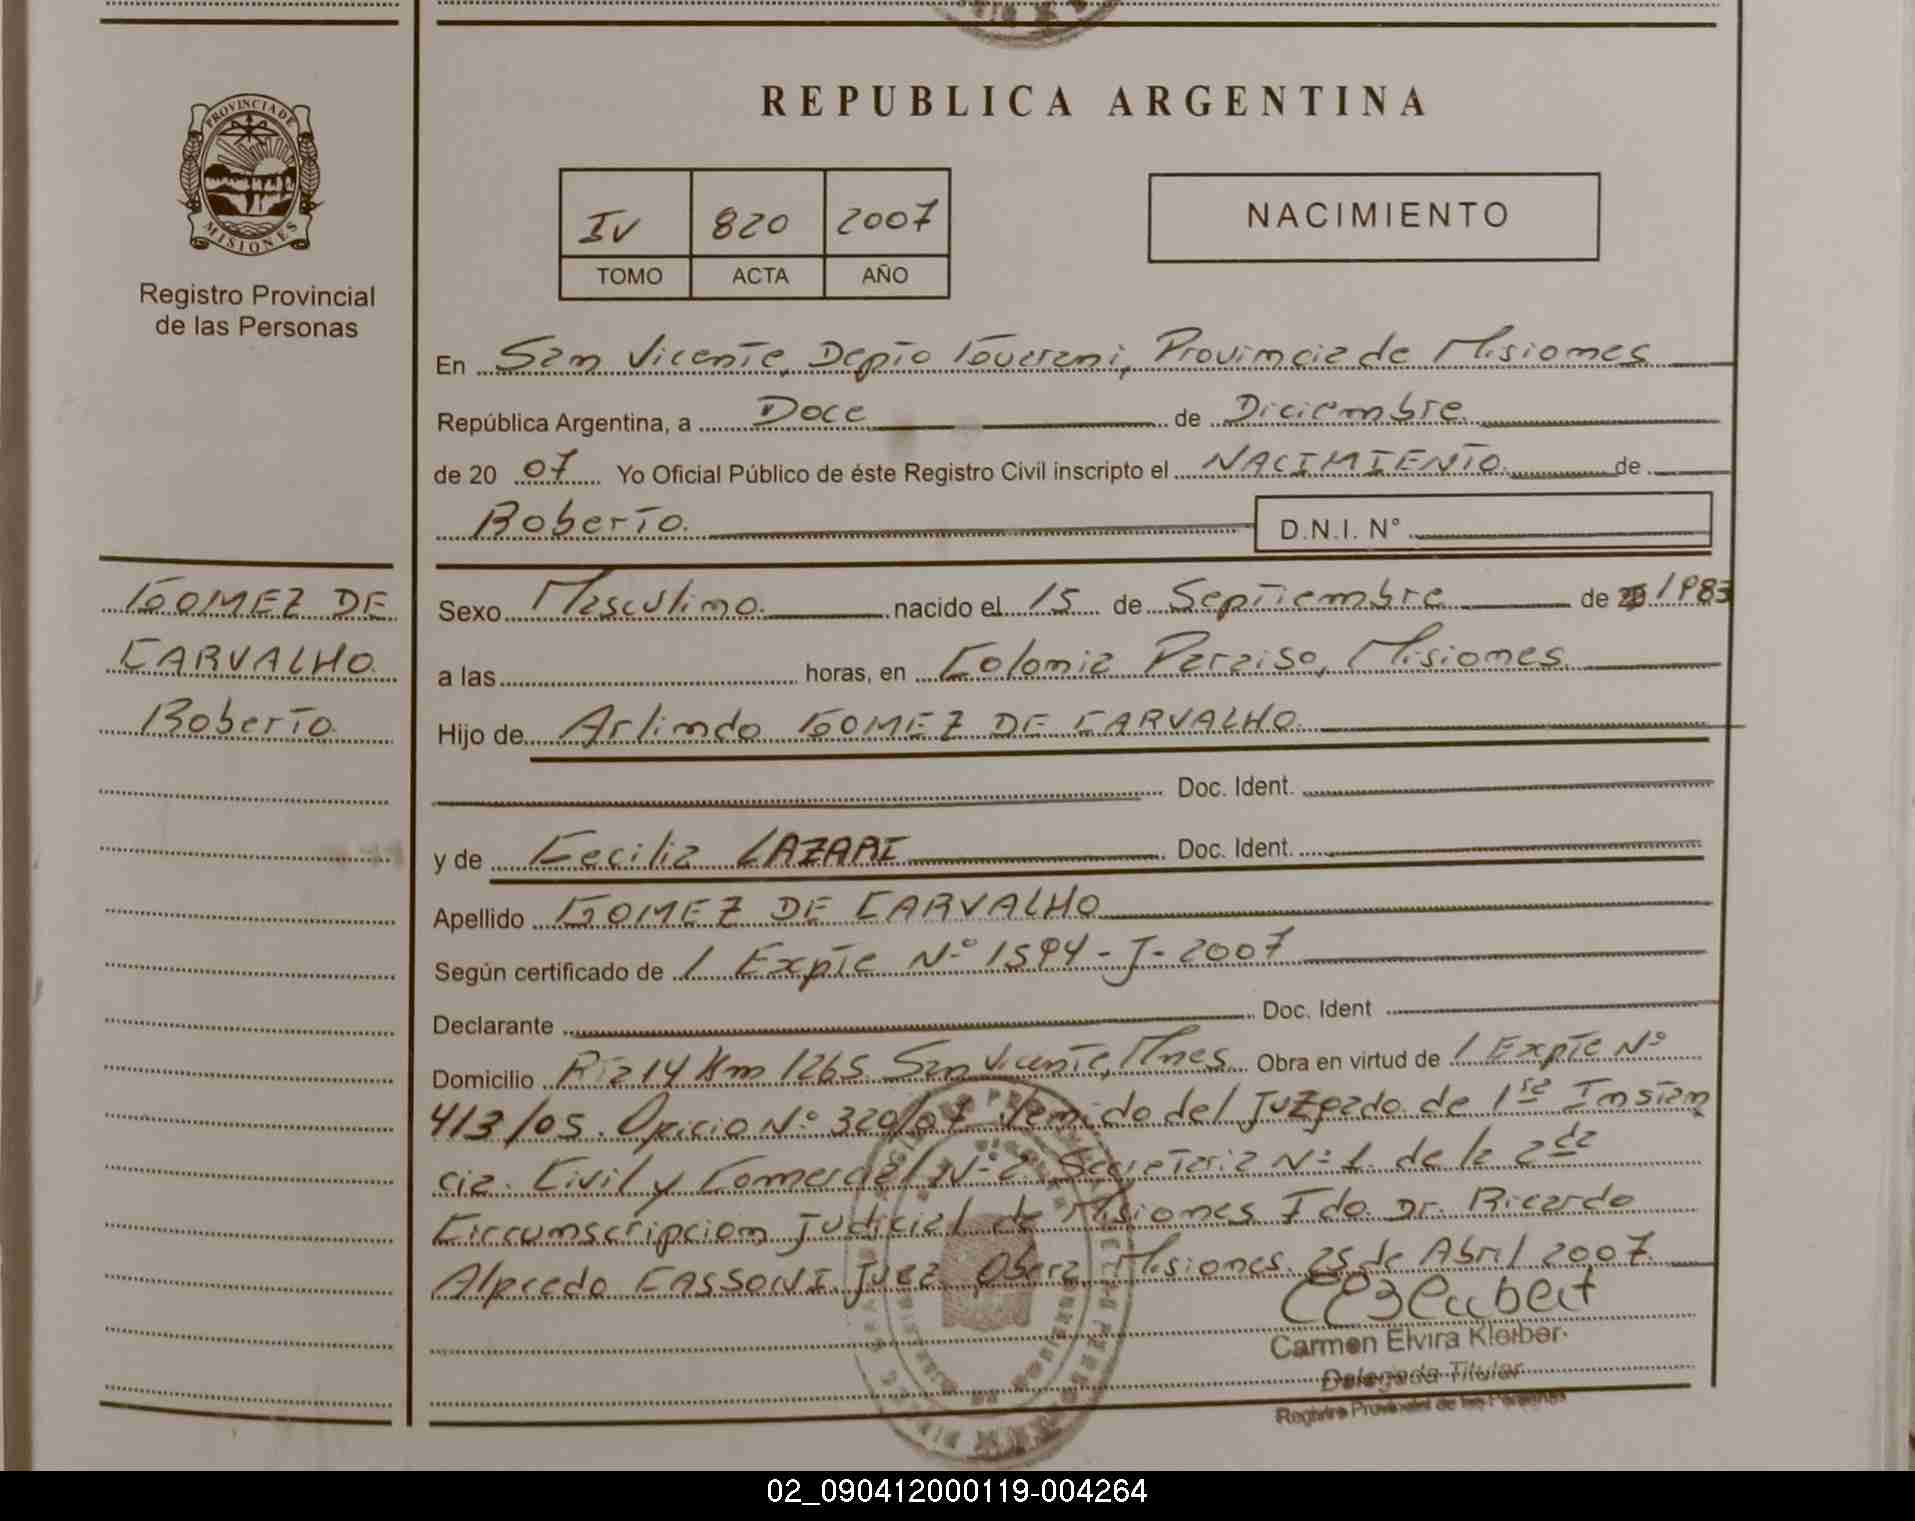 REPUBLICA ARGENTINA
PROVINCIA DE
MISIONES
Registro Provincial
de las Personas
IV 820 2007
TOMO ACTA AÑO
NACIMIENTO
En San Vicente, Depto Guarani, Provincia de Misiones
República Argentina, a Doce de Diciembre
de 20 07 Yo Oficial Público de éste Registro Civil inscripto el NACIMIENTO de
Roberto. D.N.I. N°
GOMEZ DE
CARVALHO
Roberto
Sexo Masculino nacido el 15 de Septiembre de 1983
a las horas, en Colonia Paraiso, Misiones
Hijo de Arlindo GOMEZ DE CARVALHO
Doc. Ident.
y de Cecilia LAZARI Doc. Ident.
Apellido GOMEZ DE CARVALHO
Según certificado de / Expte Nº 1594-J-2007
Declarante Doc. Ident
Domicilio Rta 14 Km 1265 San Vicente, Mnes Obra en virtud de / Expte Nº
413/05. Oficio Nº 320/07 del Juzgado de 1ra Instan
cia. Civil y Comercial Nº 2 Secretaria Nº 1. de la 2da
Circunscripcion judicial de Misiones Fdo Dr. Ricardo
Alfredo CASSONI Juez Obera Misiones. 25 de Abril 2007.
Carmen Elvira Kleiber
Delegada Titular
Registro Provincial de las Personas
02_090412000119-004264